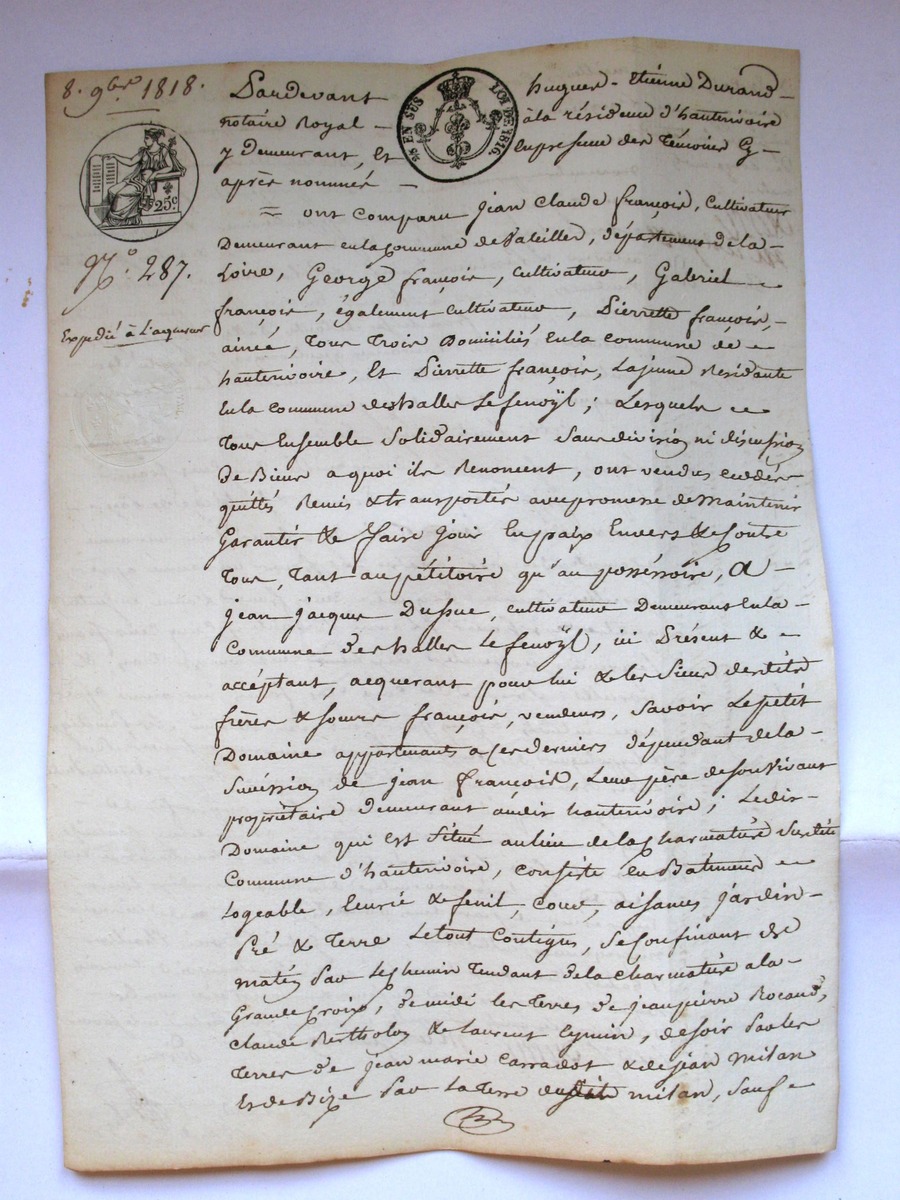 8. 9bre 1818.
Pardevant hugues-Etienne Durand
notaire Royal à la résidence d'hauterivoire
y Demeurant, Et En présence des Témoins
après nommés
EN SUS LOI DE 1816.
25c
N° 287.
Expedié à L'aquereur
= ont comparu jean Claude françois, Cultivateur
Demeurant en la Commune de , département de la
Loire, George françois, cultivateur, Gabriel
françois, également cultivateur, Pierrette françois,
ainée, Tous Trois Domiciliés En la commune de
hauterivoire, Et Pierrette françois, La jeune Résidante
En la Commune des halles Le fenoÿl; Lesquels
Tous Ensemble Solidairement Sans division ni discussion
de Biens a quoi ils Renoncent, ont vendus ceddés
quittés Remis & transportés avec promesse de Maintenir
Garantir & faire jouir En paix Envers & Contre
Tous, Tant au pétitoire qu'au posséssoire, A
jean jacques Dussuc, cultivateur Demeurant En la
Commune des halles Le fenoÿl, ici Présent &
accéptant, acquerant pour lui & les Siens desdits
frères & soeurs françois, vendeurs, Savoir Le petit
Domaine appartenants a Ces derniers dépendant de la
Succéssion de jean françois, Leur père de Son Vivant
propriétaire demeurant audit hauterivoire; Ledit
Domaine qui est Situé au lieu de la Charmature Susdite
Commune d'hauterivoire, Consiste En Batiments
Logeable, Ecurie & fenil, Cour, aisances jardin
Pré & Terre Le tout Contigus, Se Confinant de
matin Par Le Chemin Tendant de la Charmature a la
Grande Croix, de midi les Terres de jean pierre
Claude Bertholon & Laurent , de soir Par les
Terres de jean marie & de jean Milan
Et de Bize Par La Terre dudit milan, Sauf